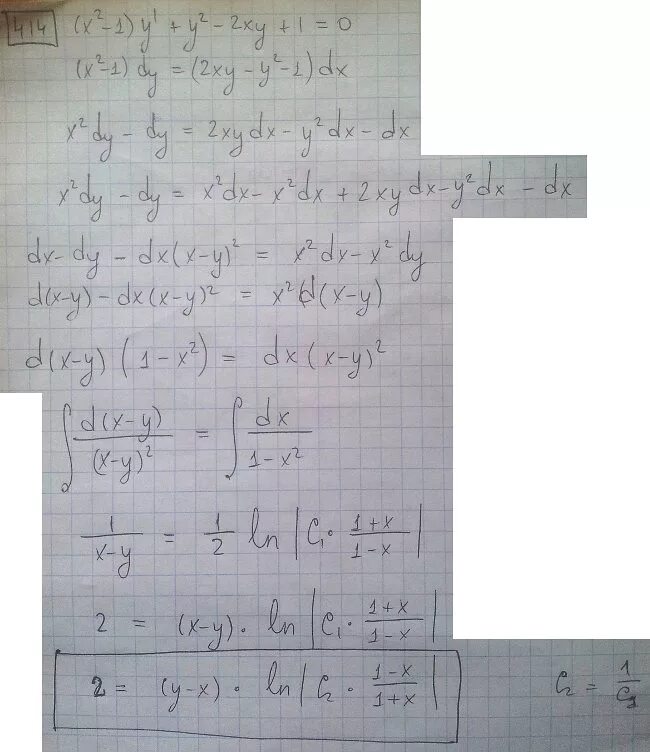 414 (x²-1) y' + y² - 2xy + 1 = 0
(x²-1) dy = (2xy - y² - 1) dx
x² dy - dy = 2xy dx - y² dx - dx
x² dy - dy = x² dx - x² dx + 2xy dx - y² dx - dx
dx - dy - dx (x-y)² = x² dx - x² dy
d(x-y) - dx (x-y)² = x² d(x-y)
d(x-y) (1-x²) = dx (x-y)²
∫ d(x-y)/(x-y)² = ∫ dx/(1-x²)
1/(x-y) = 1/2 ln | C₁ · (1+x)/(1-x) |
2 = (x-y) · ln | C₁ · (1+x)/(1-x) |
2 = (y-x) · ln | C₂ · (1-x)/(1+x) | C₂ = 1/C₁